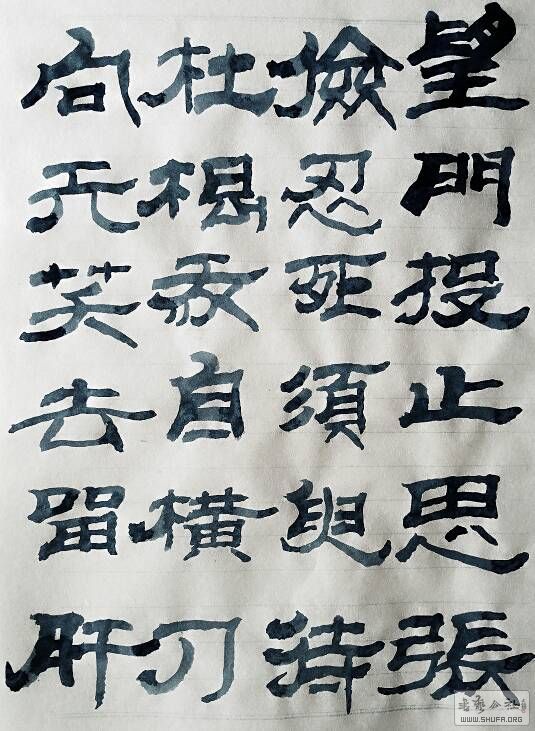 望門投止思張
儉忍死須臾待
杜根我自橫刀
向天笑去留肝
書藝公社
WWW.SHUFA.ORG